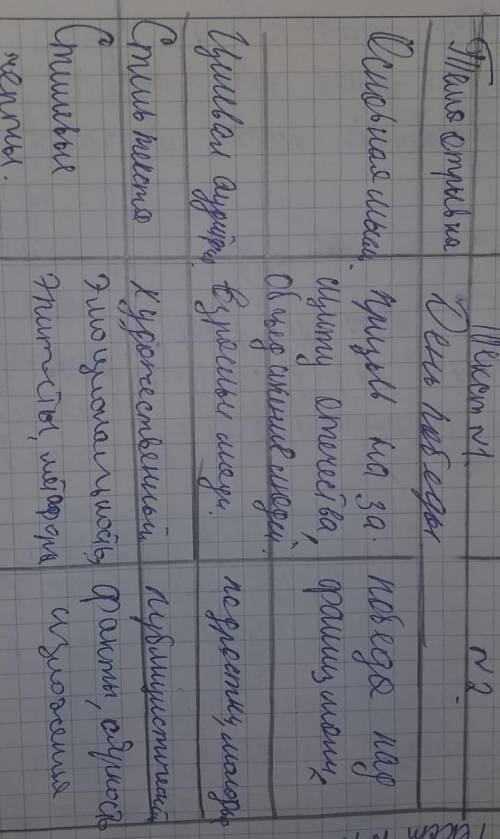 Текст №1. №2
Тема отрывка День победы
Основная мысль. призыв на за-
щиту отечества,
объединение людей. победа над
фашизмом
Целевая аудитор. Взрослые люди. подростки, молодёжь
Стиль текста художественный публицистичный
Стилевые
черты. эмоциональность,
эпитеты, метафоры факты, образность
изложения